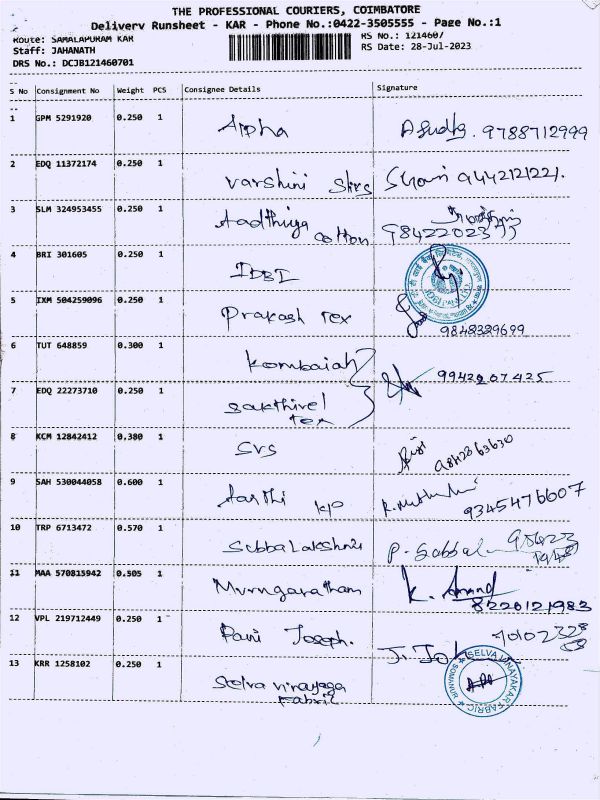 THE PROFESSIONAL COURIERS, COIMBATORE
Delivery Runsheet - KAR - Phone No.:0422-3505555 - Page No.:1
Route: SAMALAPURAM KAR RS No.: 121460/
Staff: JAHANATH RS Date: 28-Jul-2023
DRS No.: DCJB121460701
S No Consignment No Weight PCS Consignee Details Signature
1 GPM 5291920 0.250 1 Alpha 9788712999
2 EDQ 11372174 0.250 1 Varshini 9442121221.
3 SLM 324953455 0.250 1 Aadthiya cotton
4 BRI 301605 0.250 1 IDBI
5 IXM 504259096 0.250 1 Prakash Tex 9843339699
6 TUT 648859 0.300 1 Kombaiah 9942207425
7 EDQ 22273710 0.250 1 Sakthivel Tex
8 KCM 12842412 0.380 1 SVS 9842863630
9 SAH 530044058 0.600 1 Aarthi KP 9345476607
10 TRP 6713472 0.570 1 Subbalakshmi P. Subbal
11 MAA 570815942 0.505 1 Murugaratham K. Anand 8220121983
12 VPL 219712449 0.250 1 Pavi Joseph.
13 KRR 1258102 0.250 1 Selva vinayaga Fabric SELVA VINAYAKAR FABRIC SOMANUR